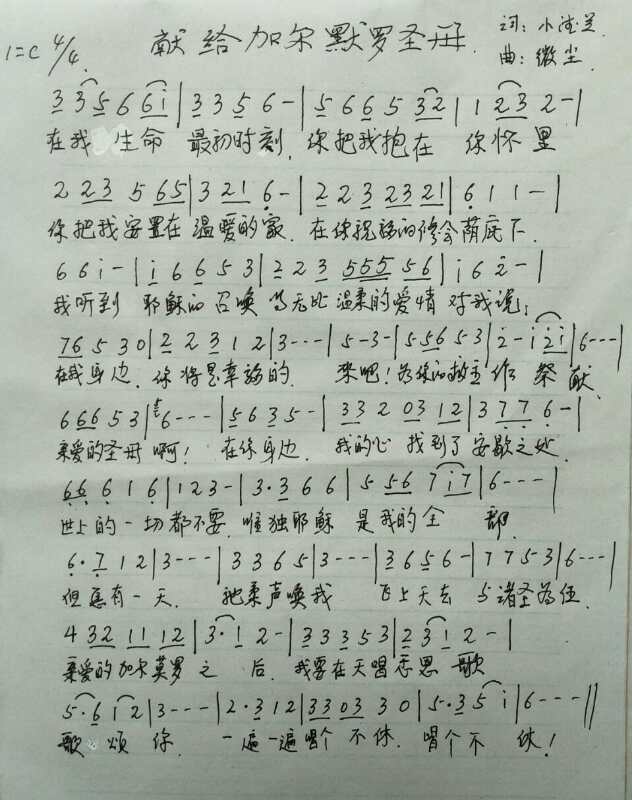 献给加尔默罗圣母
词：小德兰
1=C 4/4
曲：微尘
3 3 5 6 6 i | 3 3 5 6 - | 5 6 6 5 3 2 | 1 2 3 2 - |
在我 生命 最初时刻，你把我抱在 你怀里
2 2 3 5 6 5 | 3 2 1 6 - | 2 2 3 2 3 2 1 | 6 1 1 - |
你把我安置在 温暖的家. 在你祝福的修会荫庇下.
6 6 i - | i 6 6 5 3 | 2 2 3 5 5 5 5 6 | i 6 2 - |
我听到 耶稣的召唤 无比温柔的爱情 对我说：
7 6 5 3 0 | 2 2 3 1 2 | 3 - - - | 5 - 3 - | 5 5 6 5 3 | 2 - i 2 i | 6 - - - |
在我身边. 你将是幸福的. 来吧！为你的救主作 祭献.
6 6 6 5 3 | 6 - - - | 5 6 3 5 - | 3 3 2 0 3 1 2 | 3 7 7 6 - |
亲爱的圣母啊！ 在你身边. 我的心 找到了安歇之处.
6 6 6 1 6 | 1 2 3 - | 3 · 3 6 6 | 5 5 6 7 i 7 | 6 - - - |
世上的一切都不要. 唯独耶稣 是我的全 部.
6 · 7 1 2 | 3 - - - | 3 3 6 5 | 3 - - - | 3 6 5 6 - | 7 7 5 3 | 6 - - - |
但愿有一天. 祂柔声唤我 飞上天去 与诸圣为伍.
4 3 2 1 1 1 2 | 3 · 1 2 - | 3 3 3 5 3 | 2 3 1 2 - |
亲爱的加尔莫罗之 后. 我要在天唱恋恩歌
5 · 6 i 2 | 3 - - - | 2 · 3 1 2 | 3 3 0 3 3 0 | 5 · 3 5 i | 6 - - - ‖
歌 颂 你. 一遍一遍唱个 不休. 唱个不 休！